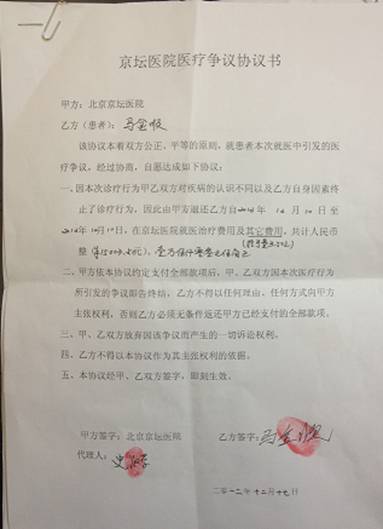 京坛医院医疗争议协议书
甲方：北京京坛医院
乙方（患者）：马金恒
该协议本着双方公正，平等的原则，就患者本次就医中引发的医
疗争议，经过协商，自愿达成如下协议：
一、因本次诊疗行为甲乙双方对疾病的认识不同以及乙方自身因素终
止了诊疗行为，因此由甲方退还乙方自 年 10 月 10 日至
年10月17日，在京坛医院就医治疗费用及其它费用，共计人民币
整
二、甲方依本协议约定支付全部款项后，甲、乙双方因本次医疗行为
所引发的争议即告终结，乙方不得以任何理由、任何方式向甲方
主张权利，否则乙方必须无条件返还甲方已经支付的全部款项。
三、甲、乙双方放弃因该争议而产生的一切诉讼权利。
四、乙方不得以本协议作为其主张权利的依据。
五、本协议经甲、乙双方签字，即刻生效。
甲方签字：北京京坛医院 乙方签字：马金恒
代理人：
二〇一二年十二月十七日